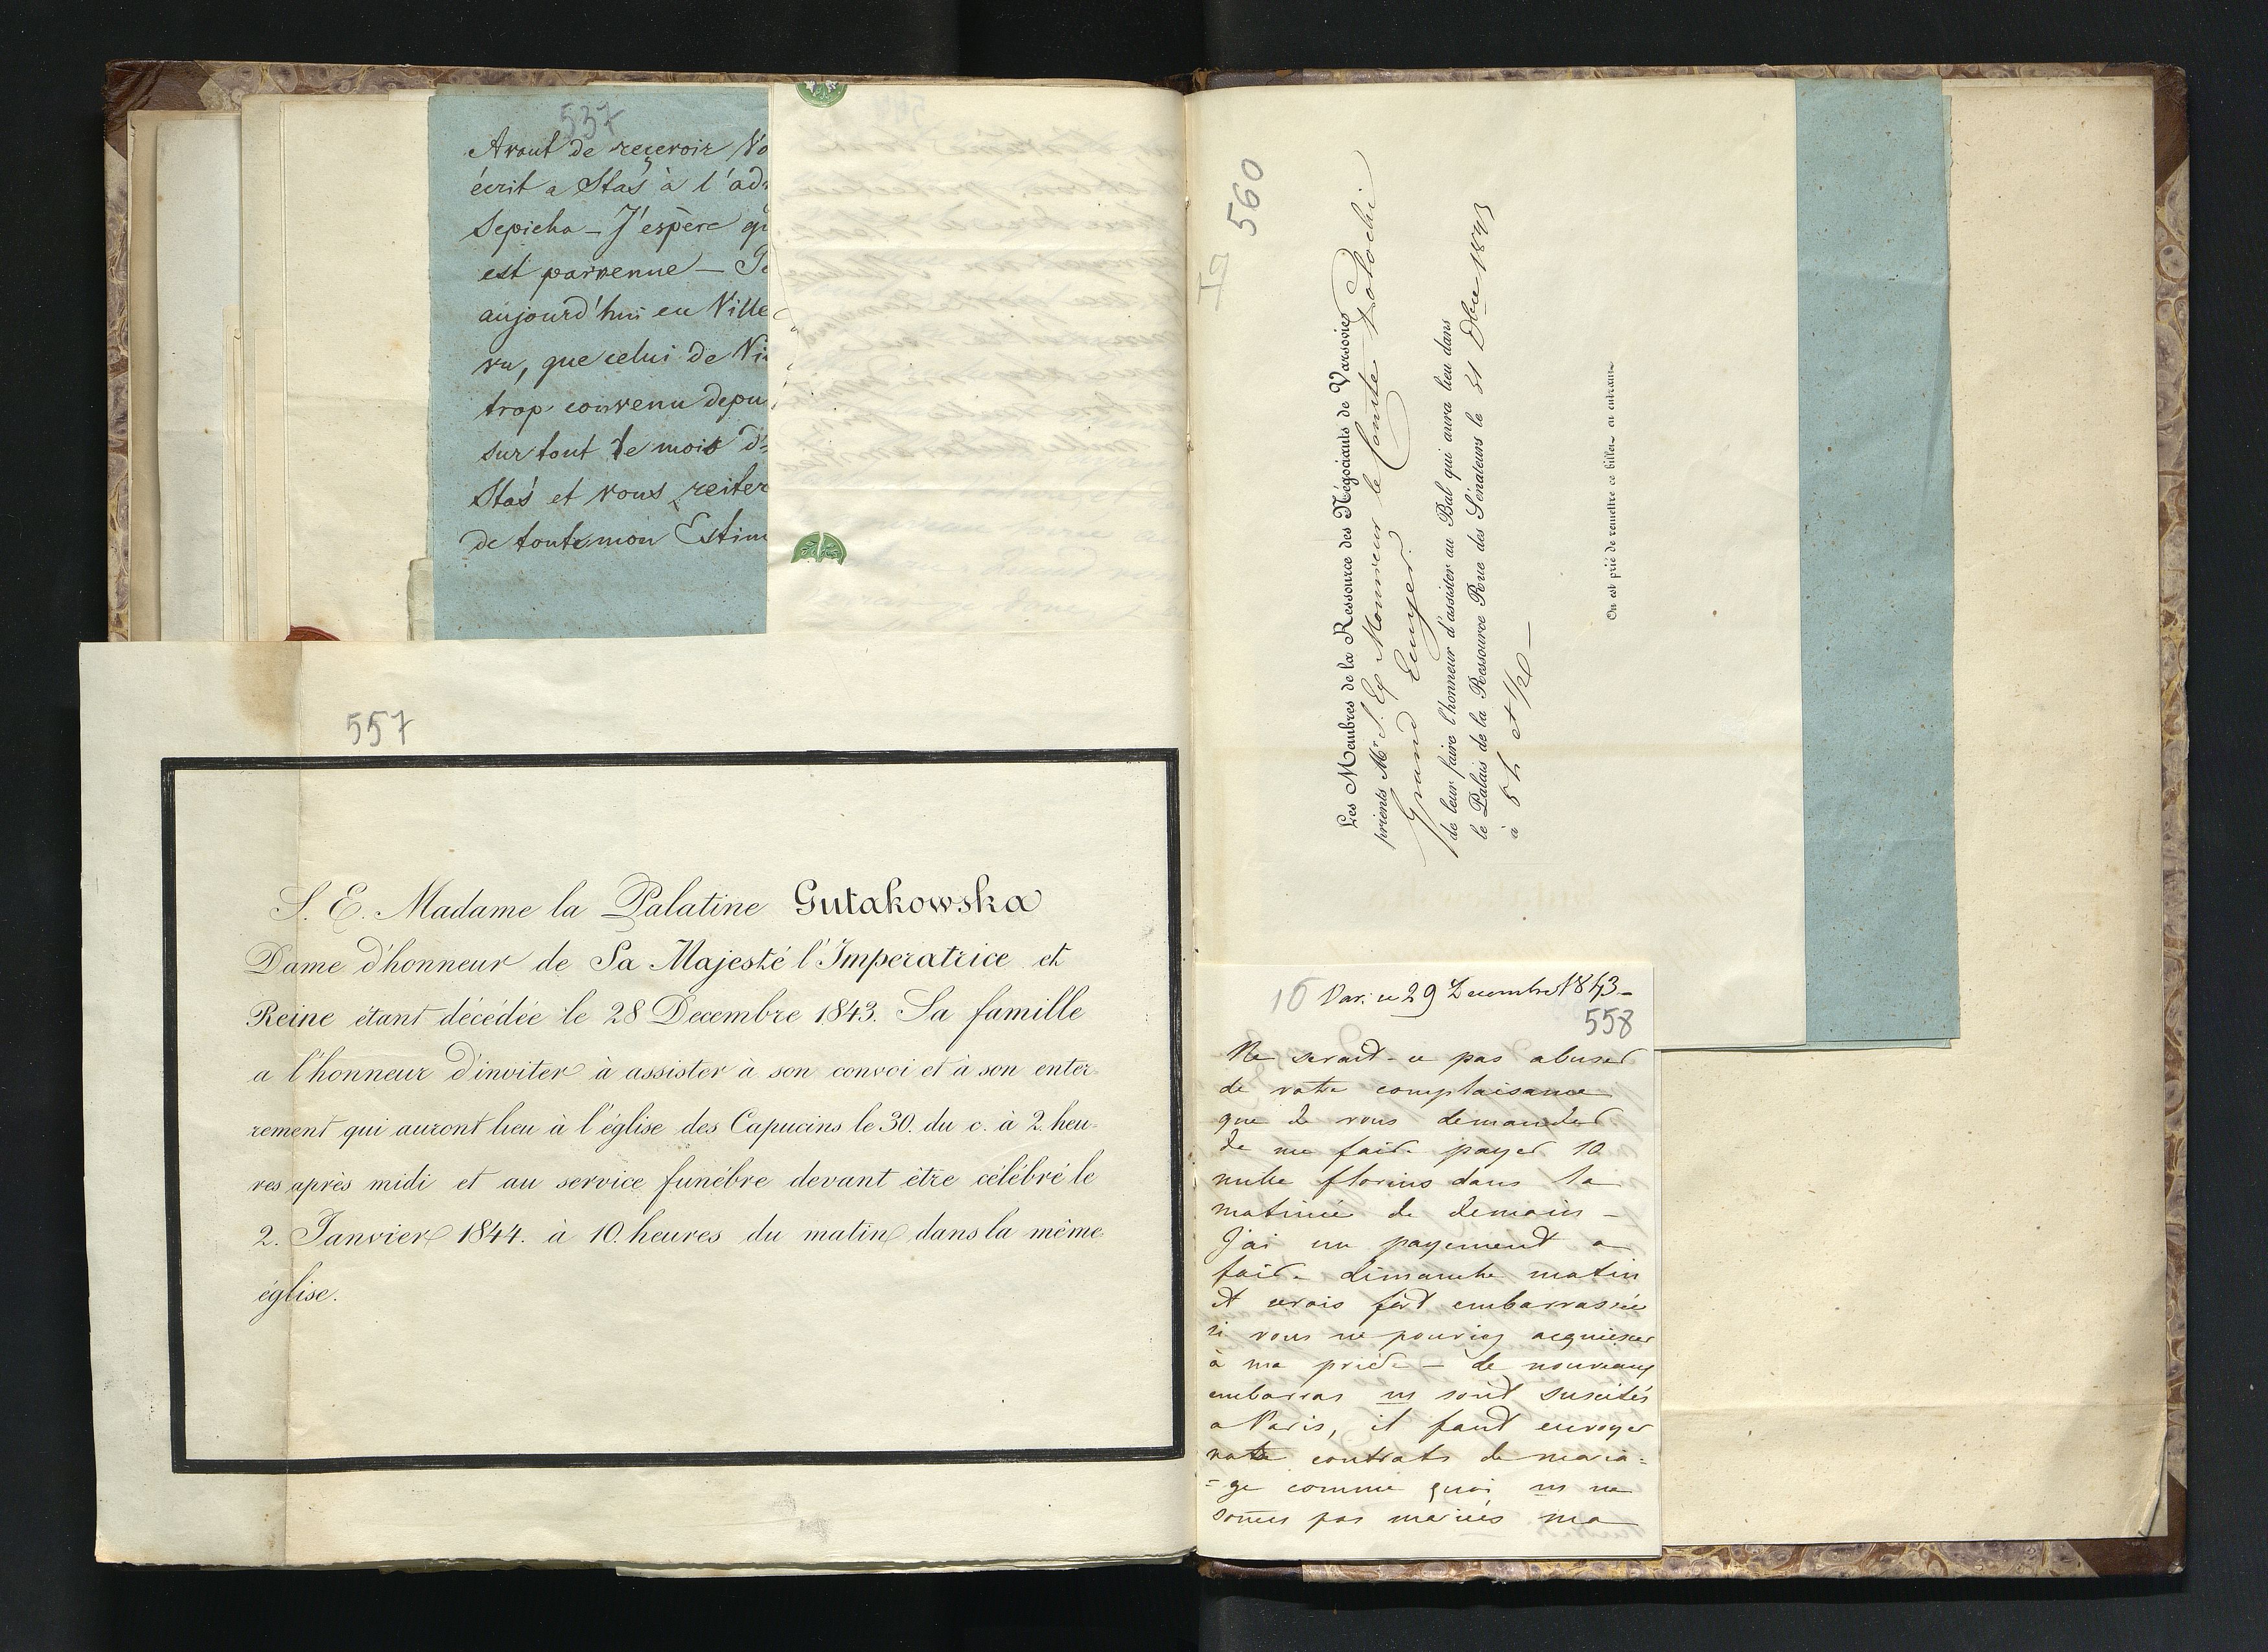 557
Avant de recevoir Vo
écrit a Stas à l'ad
Sepicha - J'espère qu
est parvenue -
aujourd'hui en Ville
vu, que celui de Vi
trop convenu depu
sur tout le mois d'
Stas et vous reiter
de toute mon Estim
557
S. E. Madame la Palatine Gutakowska
Dame d'honneur de Sa Majesté l'Imperatrice et
Reine étant décédée le 28 Decembre 1843. Sa famille
a l'honneur d'inviter à assister à son convoi et à son enter-
rement qui auront lieu à l'église des Capucins le 30. du c. à 2. heu-
res après midi et au service funébre devant être célébré le
2. Janvier 1844. à 10. heures du matin dans la même
église.
560
Les Membres de la Ressource des Négociants de Varsovie
prient Mr S. Ex Monsieur le Comte Potocki
Grand Ecuyer
de leur faire l'honneur d'assister au Bal qui aura lieu dans
le Palais de la Ressource Rue des Sénateurs le 31 Dbre 1843
à 8 h et 1/2 -
On est prié de remettre ce billet en entrant
16 Var: ce 29 Decembre 1843-
558
Ne serait-ce pas abuser
de votre complaisance
que de vous demander
de me faire payer 10
mille florins dans la
matinée de demain -
J'ai un payement a
faire dimanche matin
et serais fort embarrassée
si vous ne pouviez acquiescer
à ma prière - de nouveaux
embarras ns sont suscités
a Paris, il faut envoyer
notre contrats de maria=
=ge comme quoi ns ne
somes pas mariés ma